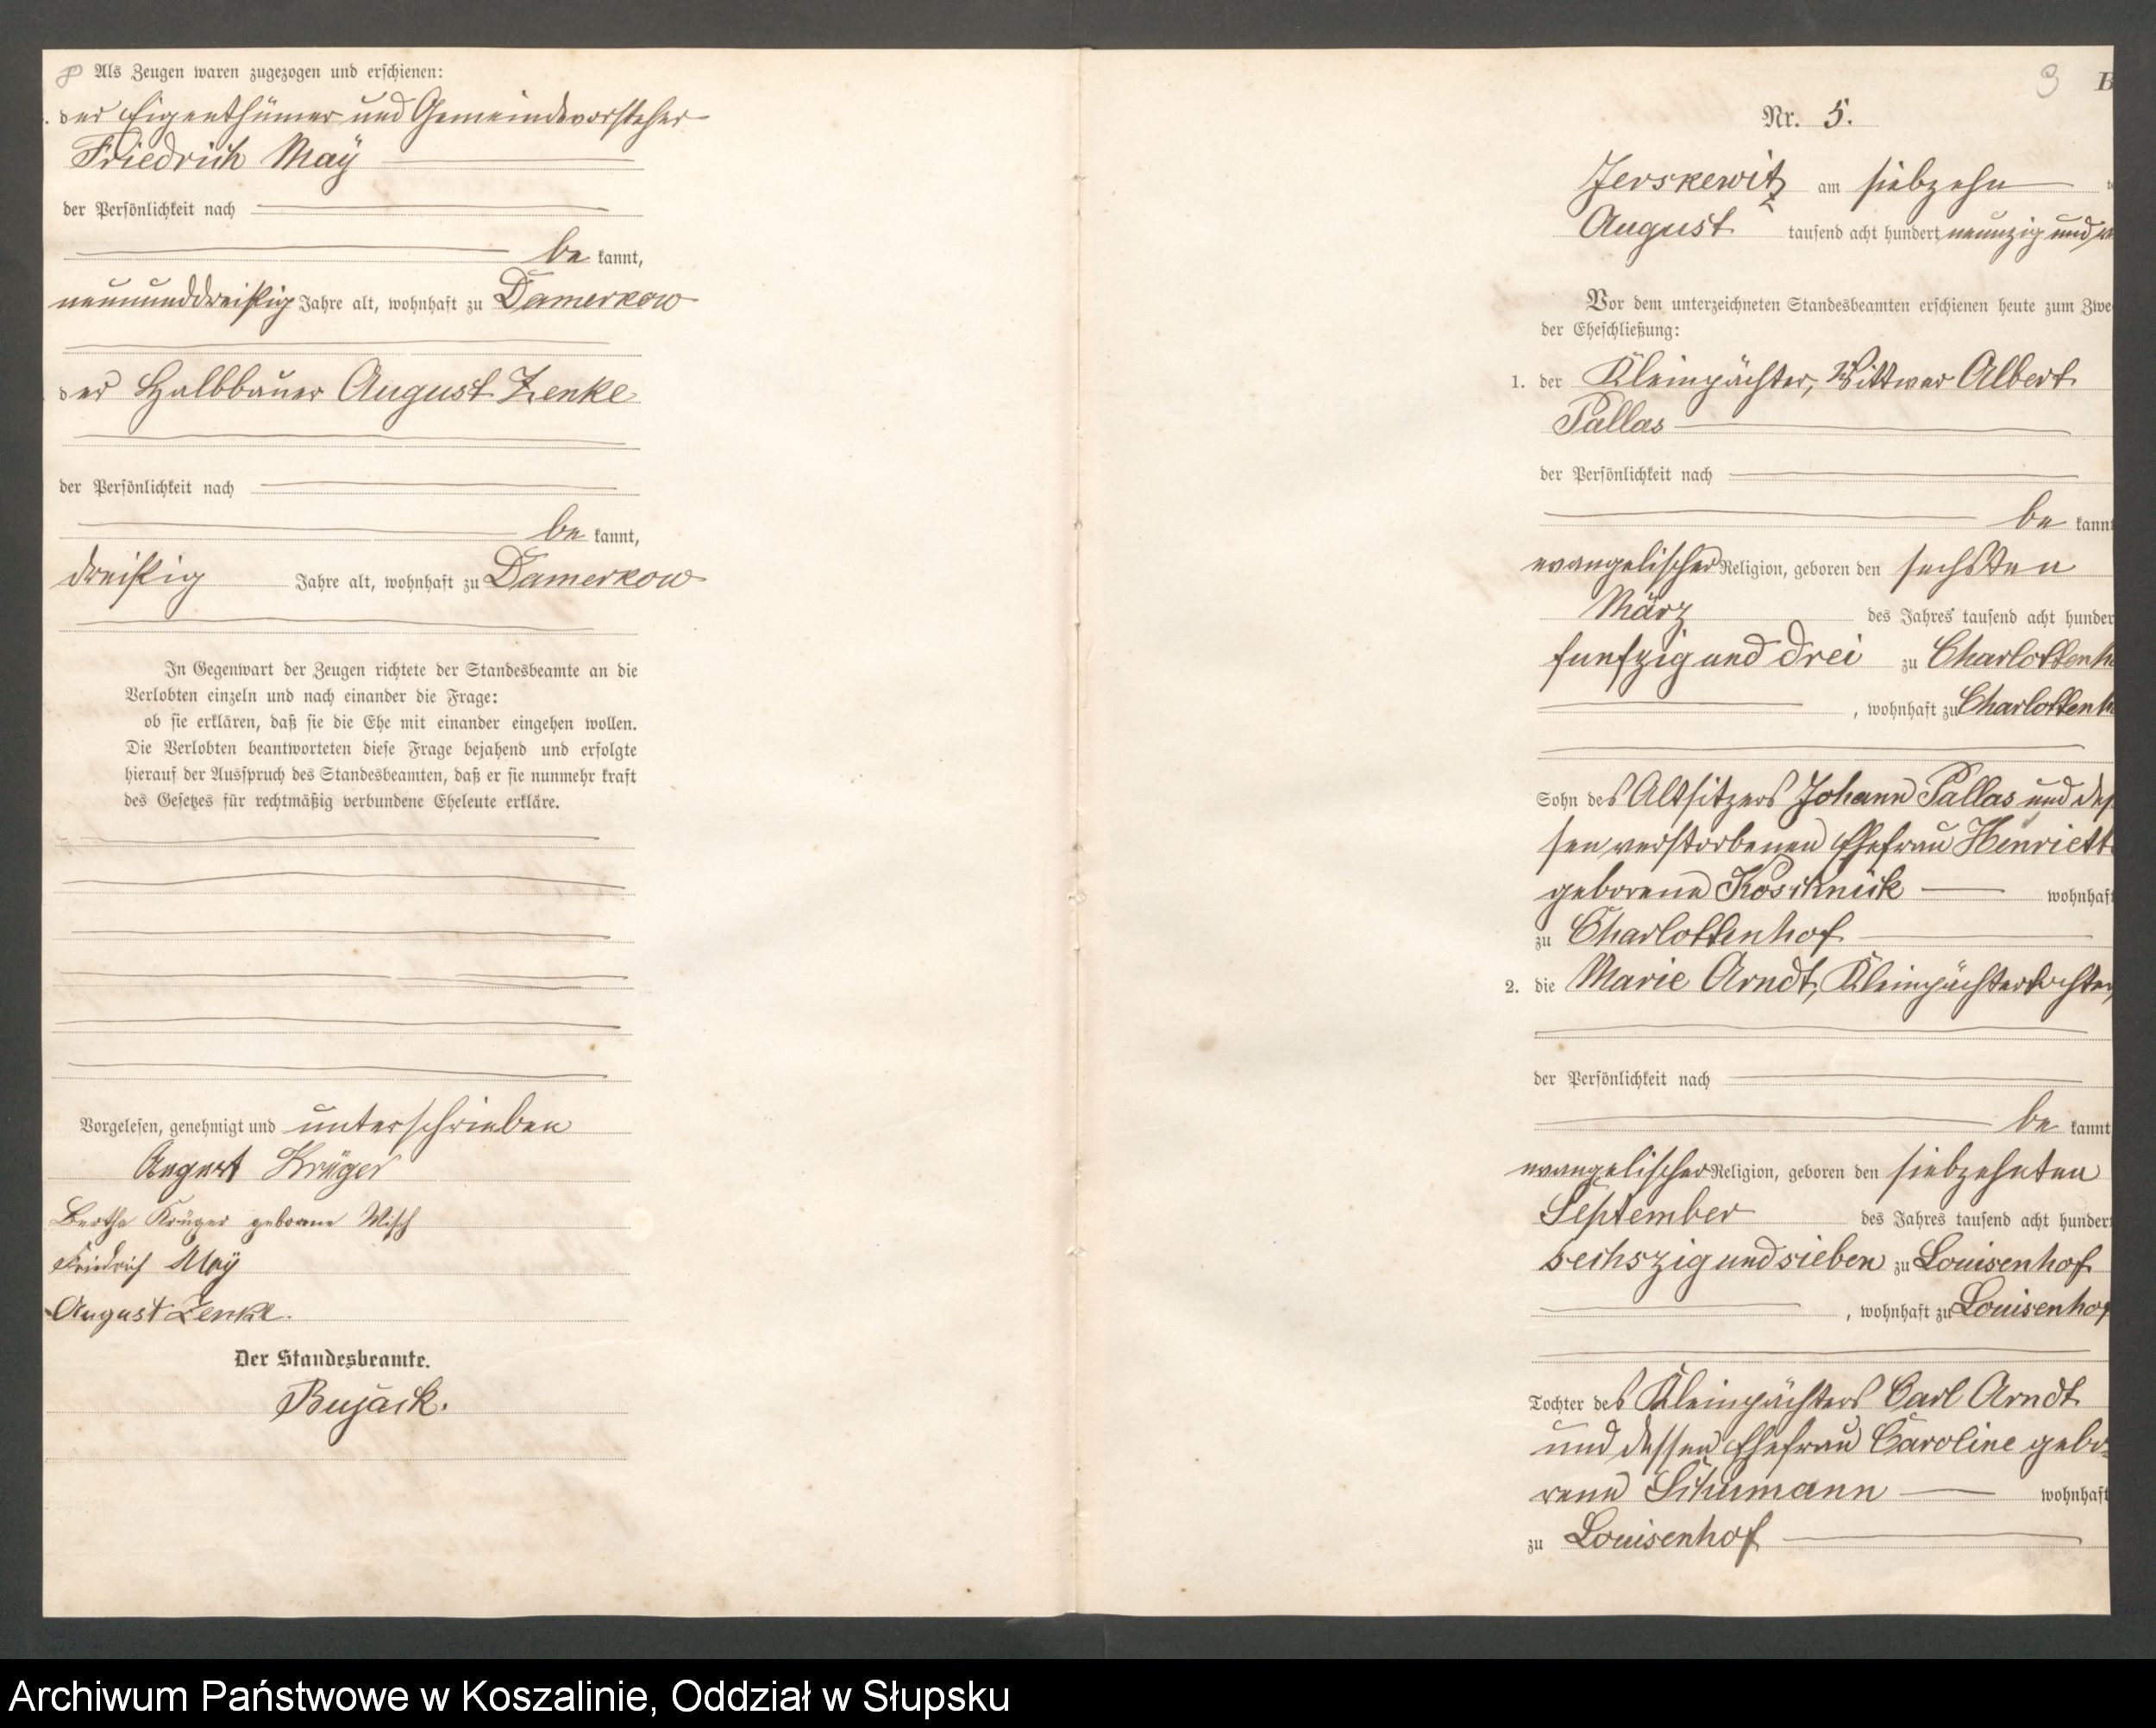 8 Als Zeugen waren zugezogen und erschienen:
der Eigenthümer und Gemeindevorsteher
Friedrich Maÿ
der Persönlichkeit nach
be kannt,
neununddreißig Jahre alt, wohnhaft zu Damerkow
der Halbbauer August Zenke
der Persönlichkeit nach
be kannt,
dreißig Jahre alt, wohnhaft zu Damerkow
In Gegenwart der Zeugen richtete der Standesbeamte an die
Verlobten einzeln und nach einander die Frage:
ob sie erklären, daß sie die Ehe mit einander eingehen wollen.
Die Verlobten beantworteten diese Frage bejahend und erfolgte
hierauf der Ausspruch des Standesbeamten, daß er sie nunmehr kraft
des Gesetzes für rechtmäßig verbundene Eheleute erkläre.
Vorgelesen, genehmigt und unterschrieben
August Krüger
Bertha Krüger geborene Wisch
Friedrich Maÿ
August Zenke.
Der Standesbeamte.
Bujack.
9 B
Nr. 5.
Jerskewitz am siebzehn
August tausend acht hundert neunzig und
Vor dem unterzeichneten Standesbeamten erschienen heute zum Zwe
der Eheschließung:
1. der Kleinpächter, Wittwer Albert
Pallas
der Persönlichkeit nach
be kannt
evangelischer Religion, geboren den sechsten
März des Jahres tausend acht hunder
funfzig und drei zu Charlottenh
, wohnhaft zu Charlottenh
Sohn des Altsitzers Johann Pallas und des
sen verstorbenen Ehefrau Henriett
geborene Koschnick wohnhaft
zu Charlottenhof
2. die Marie Arndt, Kleinpächtertochter,
der Persönlichkeit nach
be kannt
evangelischer Religion, geboren den siebzehnten
September des Jahres tausend acht hundert
sechszig und sieben zu Louisenhof
, wohnhaft zu Louisenhof
Tochter des Kleinpächters Carl Arndt
und dessen Ehefrau Caroline gebo-
rene Schumann wohnhaft
zu Louisenhof
Archiwum Państwowe w Koszalinie, Oddział w Słupsku